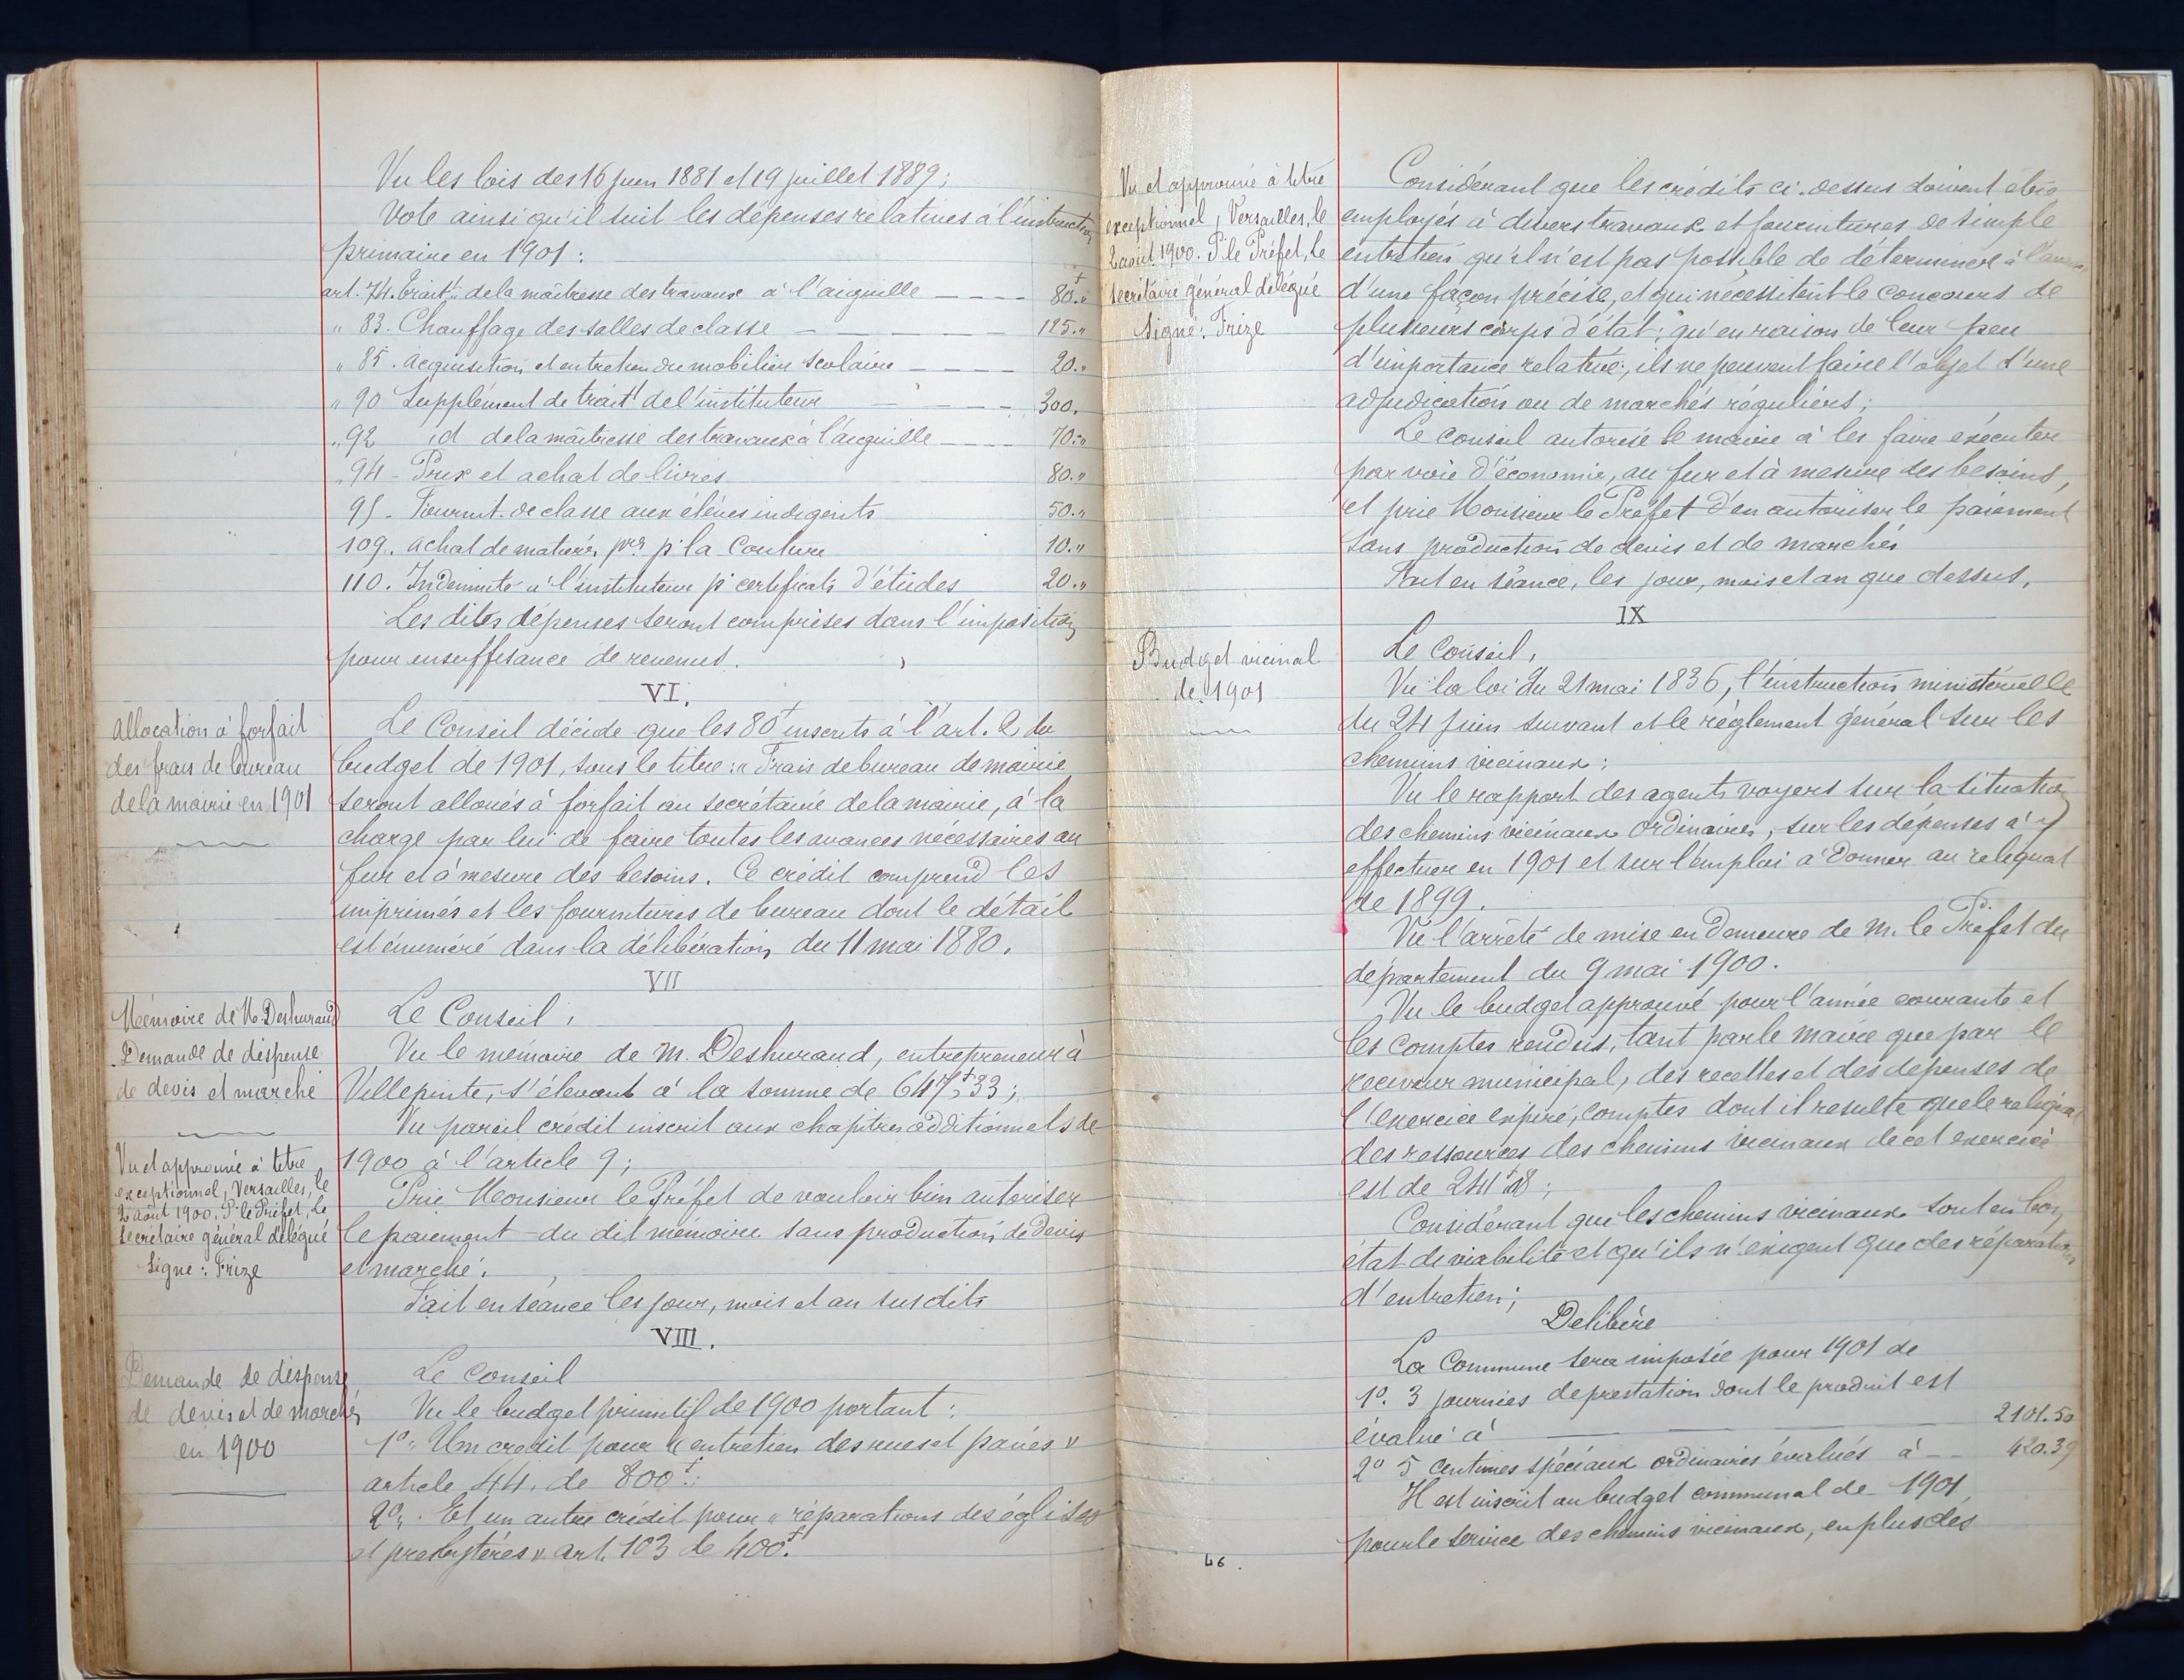 Vu les lois des 16 juin 1881 et 19 juillet 1889;
Vote ainsi qu'il suit les dépenses relatives à l'instruction
primaire en 1901:
art. 74. trait.t de la maîtresse des travaux à l'aiguille 80.f "
" 83. Chauffage des salles de classe 125."
" 85. acquisition et entretien du mobilier scolaire 20."
" 90 Supplément de trait.t de l'instituteur 300.
" 92 id de la maîtresse des travaux à l'aiguille 70."
" 94 - Prix et achat de livres 80."
95. Fournit. de classe aux élèves indigents 50."
109. achat de matières pres pr la Couture 10."
110. Indemnité à l'instituteur pr certificats d'études 20."
Les dites dépenses seront comprises dans l'imposition
pour insuffisance de revenus.
VI.
Allocation à forfait
des frais de bureau
de la mairie en 1901
Le Conseil décide que les 80f inscrits à l'art. 2 du
budget de 1901, sous le titre: " Frais de bureau de mairie
seront alloués à forfait au secrétaire de la mairie, à la
charge par lui de faire toutes les avances nécessaires au
fur et à mesure des besoins. Ce crédit comprend les
imprimés et les fournitures de bureau dont le détail
est énuméré dans la délibération du 11 mai 1880.
VII
Mémoire de M. Deshuraud
Demande de dispense
de devis et marché
Le Conseil,
Vu le mémoire de M. Deshuraud, entrepreneur à
Villepinte, s'élevant à la somme de 647f,33;
Vu pareil crédit inscrit aux chapitres additionnels de
1900 à l'article 9;
Prie Monsieur le Préfet de vouloir bien autoriser
le paiement du dit mémoire sans production de devis
et marché.
Fait en séance les jour, mois et an susdits
Vu et approuvé à titre
exceptionnel, Versailles, le
2 août 1900. Pr le Préfet, Le
secrétaire général délégué
Signé: Frize
VIII.
Demande de dispense
de devis et de marchés
en 1900
Le Conseil
Vu le budget primitif de 1900 portant:
1° " Un crédit pour " entretien des rues et pavés "
article 44. de 800f;
2° " Et un autre crédit pour " réparations des églises
et presbytères " art. 103 de 400f.
Vu et approuvé à titre
exceptionnel, Versailles, le
2 août 1900. Pr le Préfet, Le
secrétaire général délégué
Signé: Frize
Considérant que les crédits ci-dessus doivent être
employés à divers travaux et fournitures de simple
entretien qu'il n'est pas possible de déterminer à l'avance
d'une façon précise, et qui nécessitent le concours de
plusieurs corps d'état; qu'en raison de leur peu
d'importance relative, ils ne peuvent faire l'objet d'une
adjudication ou de marchés réguliers;
Le conseil autorise le maire à les faire exécuter
par voie d'économie, au fur et à mesure des besoins,
et prie Monsieur le Préfet d'en autoriser le paiement
sans production de devis et de marchés
Fait en séance, les jour, mois et an que dessus.
IX
Budget vicinal
de 1901
Le Conseil,
Vu la loi du 21 mai 1836, l'instruction ministérielle
du 24 juin suivant et le règlement général sur les
chemins vicinaux:
Vu le rapport des agents voyers sur la situation
des chemins vicinaux ordinaires, sur les dépenses à y
effectuer en 1901 et sur l'emploi à donner au reliquat
de 1899.
Vu l'arrêté de mise en demeure de M. le Préfet du
département du 9 mai 1900.
Vu le budget approuvé pour l'année courante et
les comptes rendus, tant par le maire que par le
receveur municipal, des recettes et des dépenses de
l'exercice expiré, comptes dont il résulte que le reliquat
des ressources des chemins vicinaux de cet exercice
est de
Considérant que les chemins vicinaux sont en bon
état de viabilité et qu'ils n'exigent que des réparations
d'entretien;
Délibère
La Commune sera imposée pour 1901 de
1°. 3 journées de prestation dont le produit est
évalué à 2101.50
2° 5 Centimes spéciaux ordinaires évalués à 420.39
Il est inscrit au budget communal de 1901
pour le service des chemins vicinaux, en plus des
46.